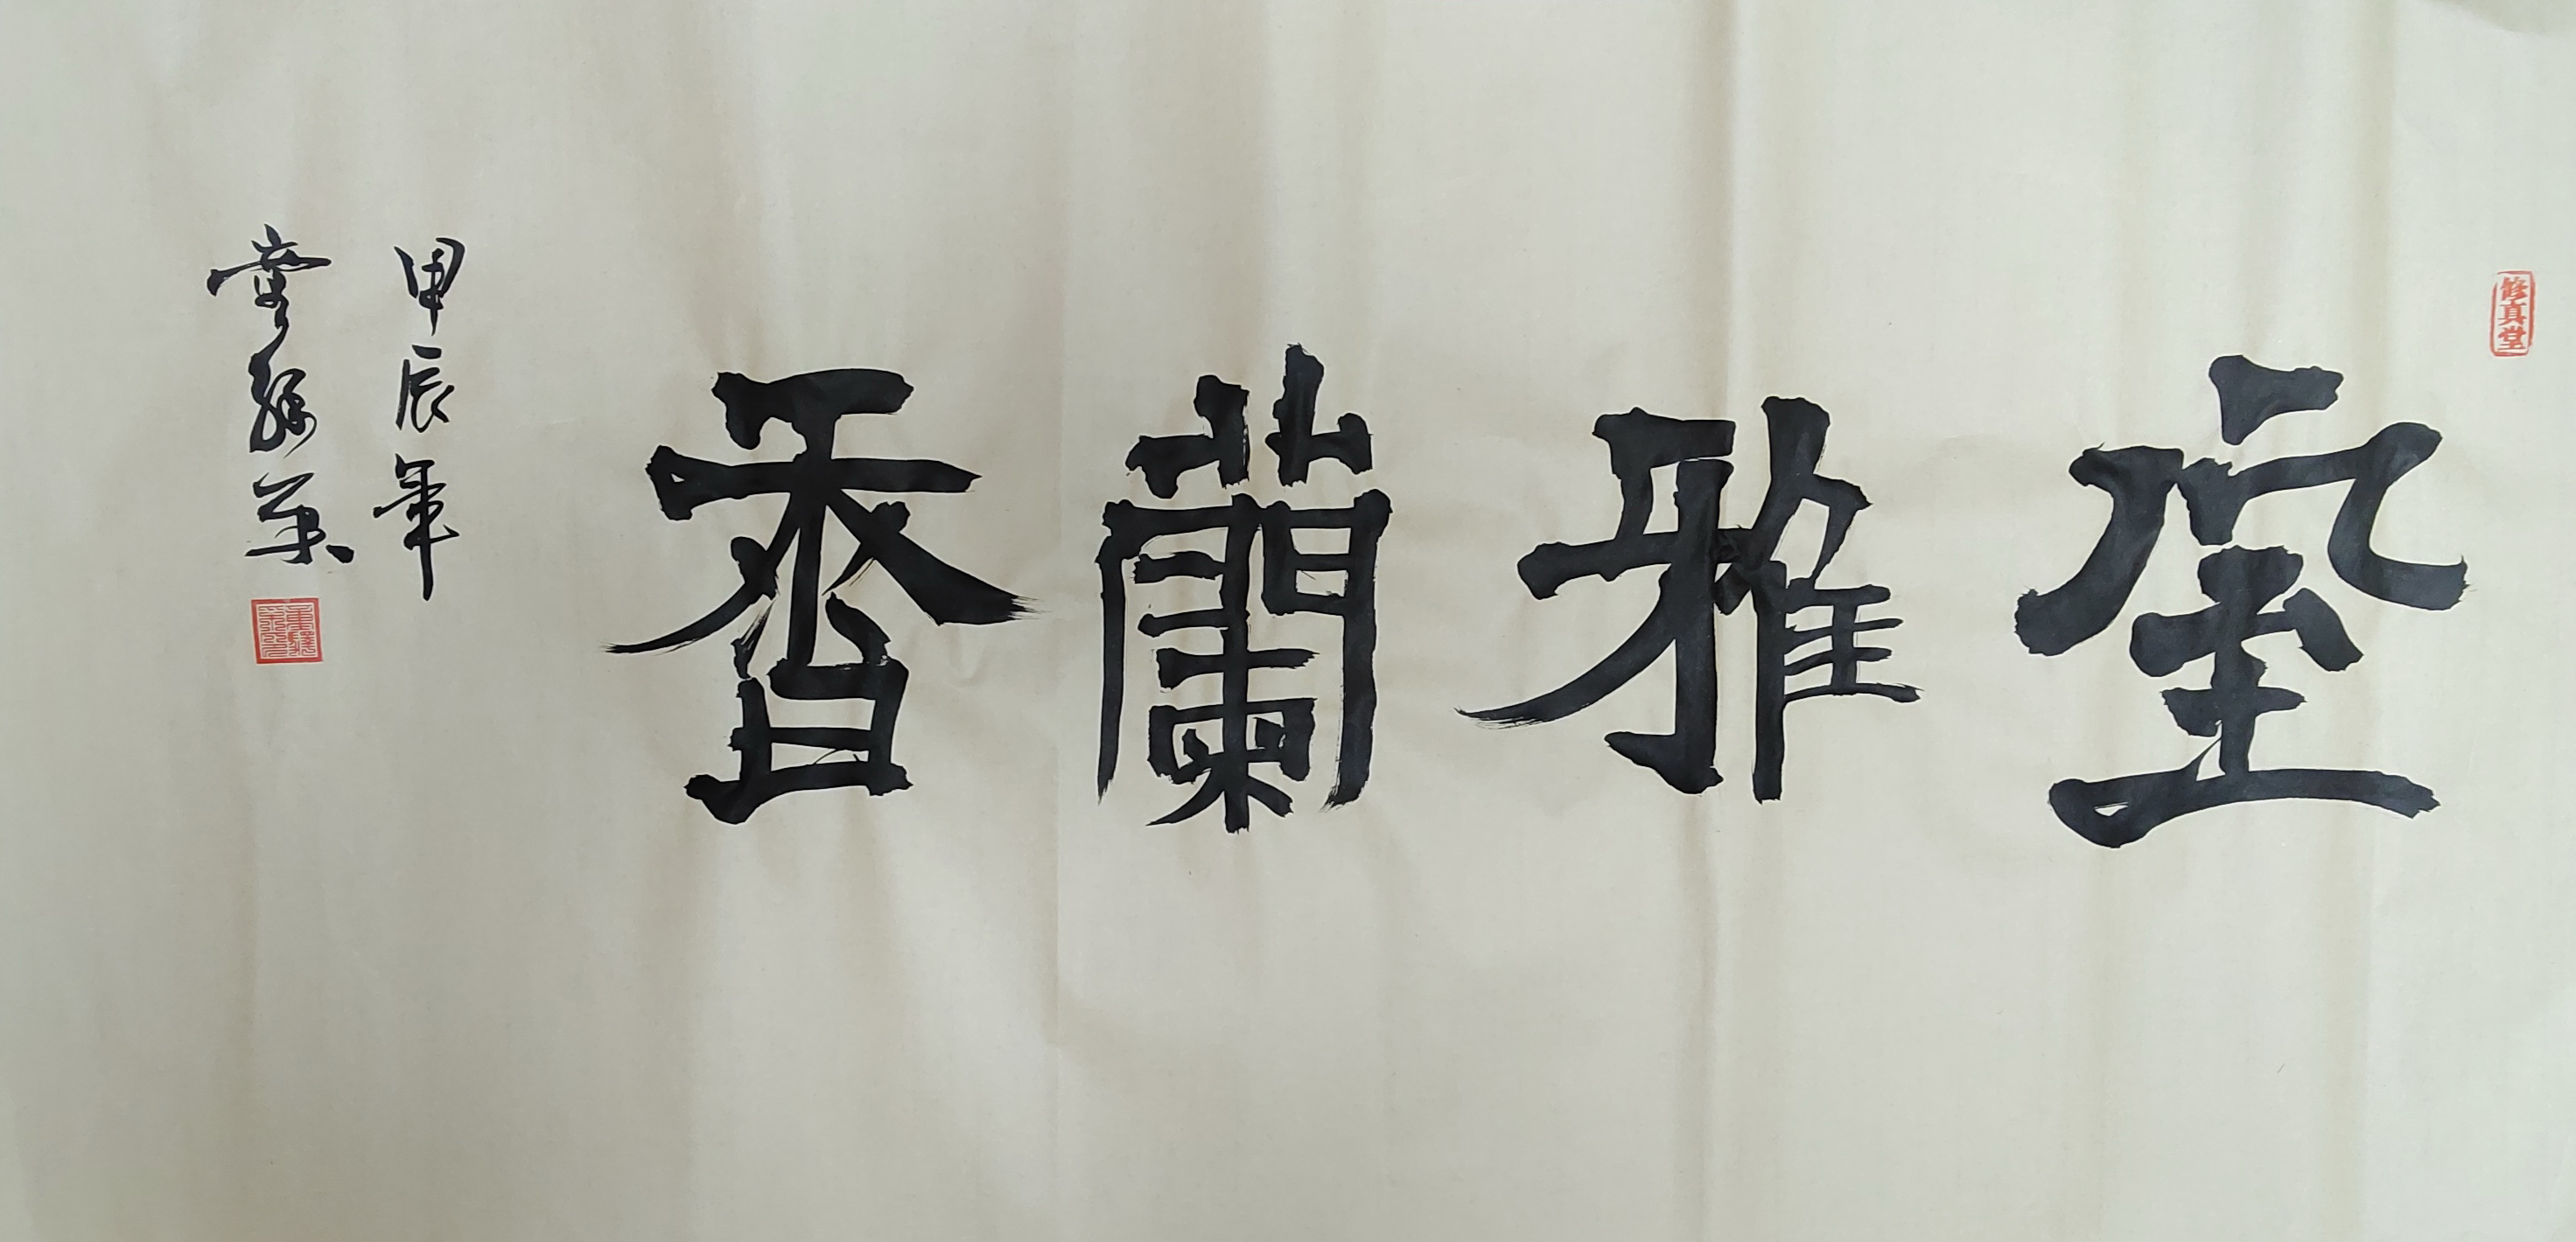 修真堂
室雅蘭香
甲辰年